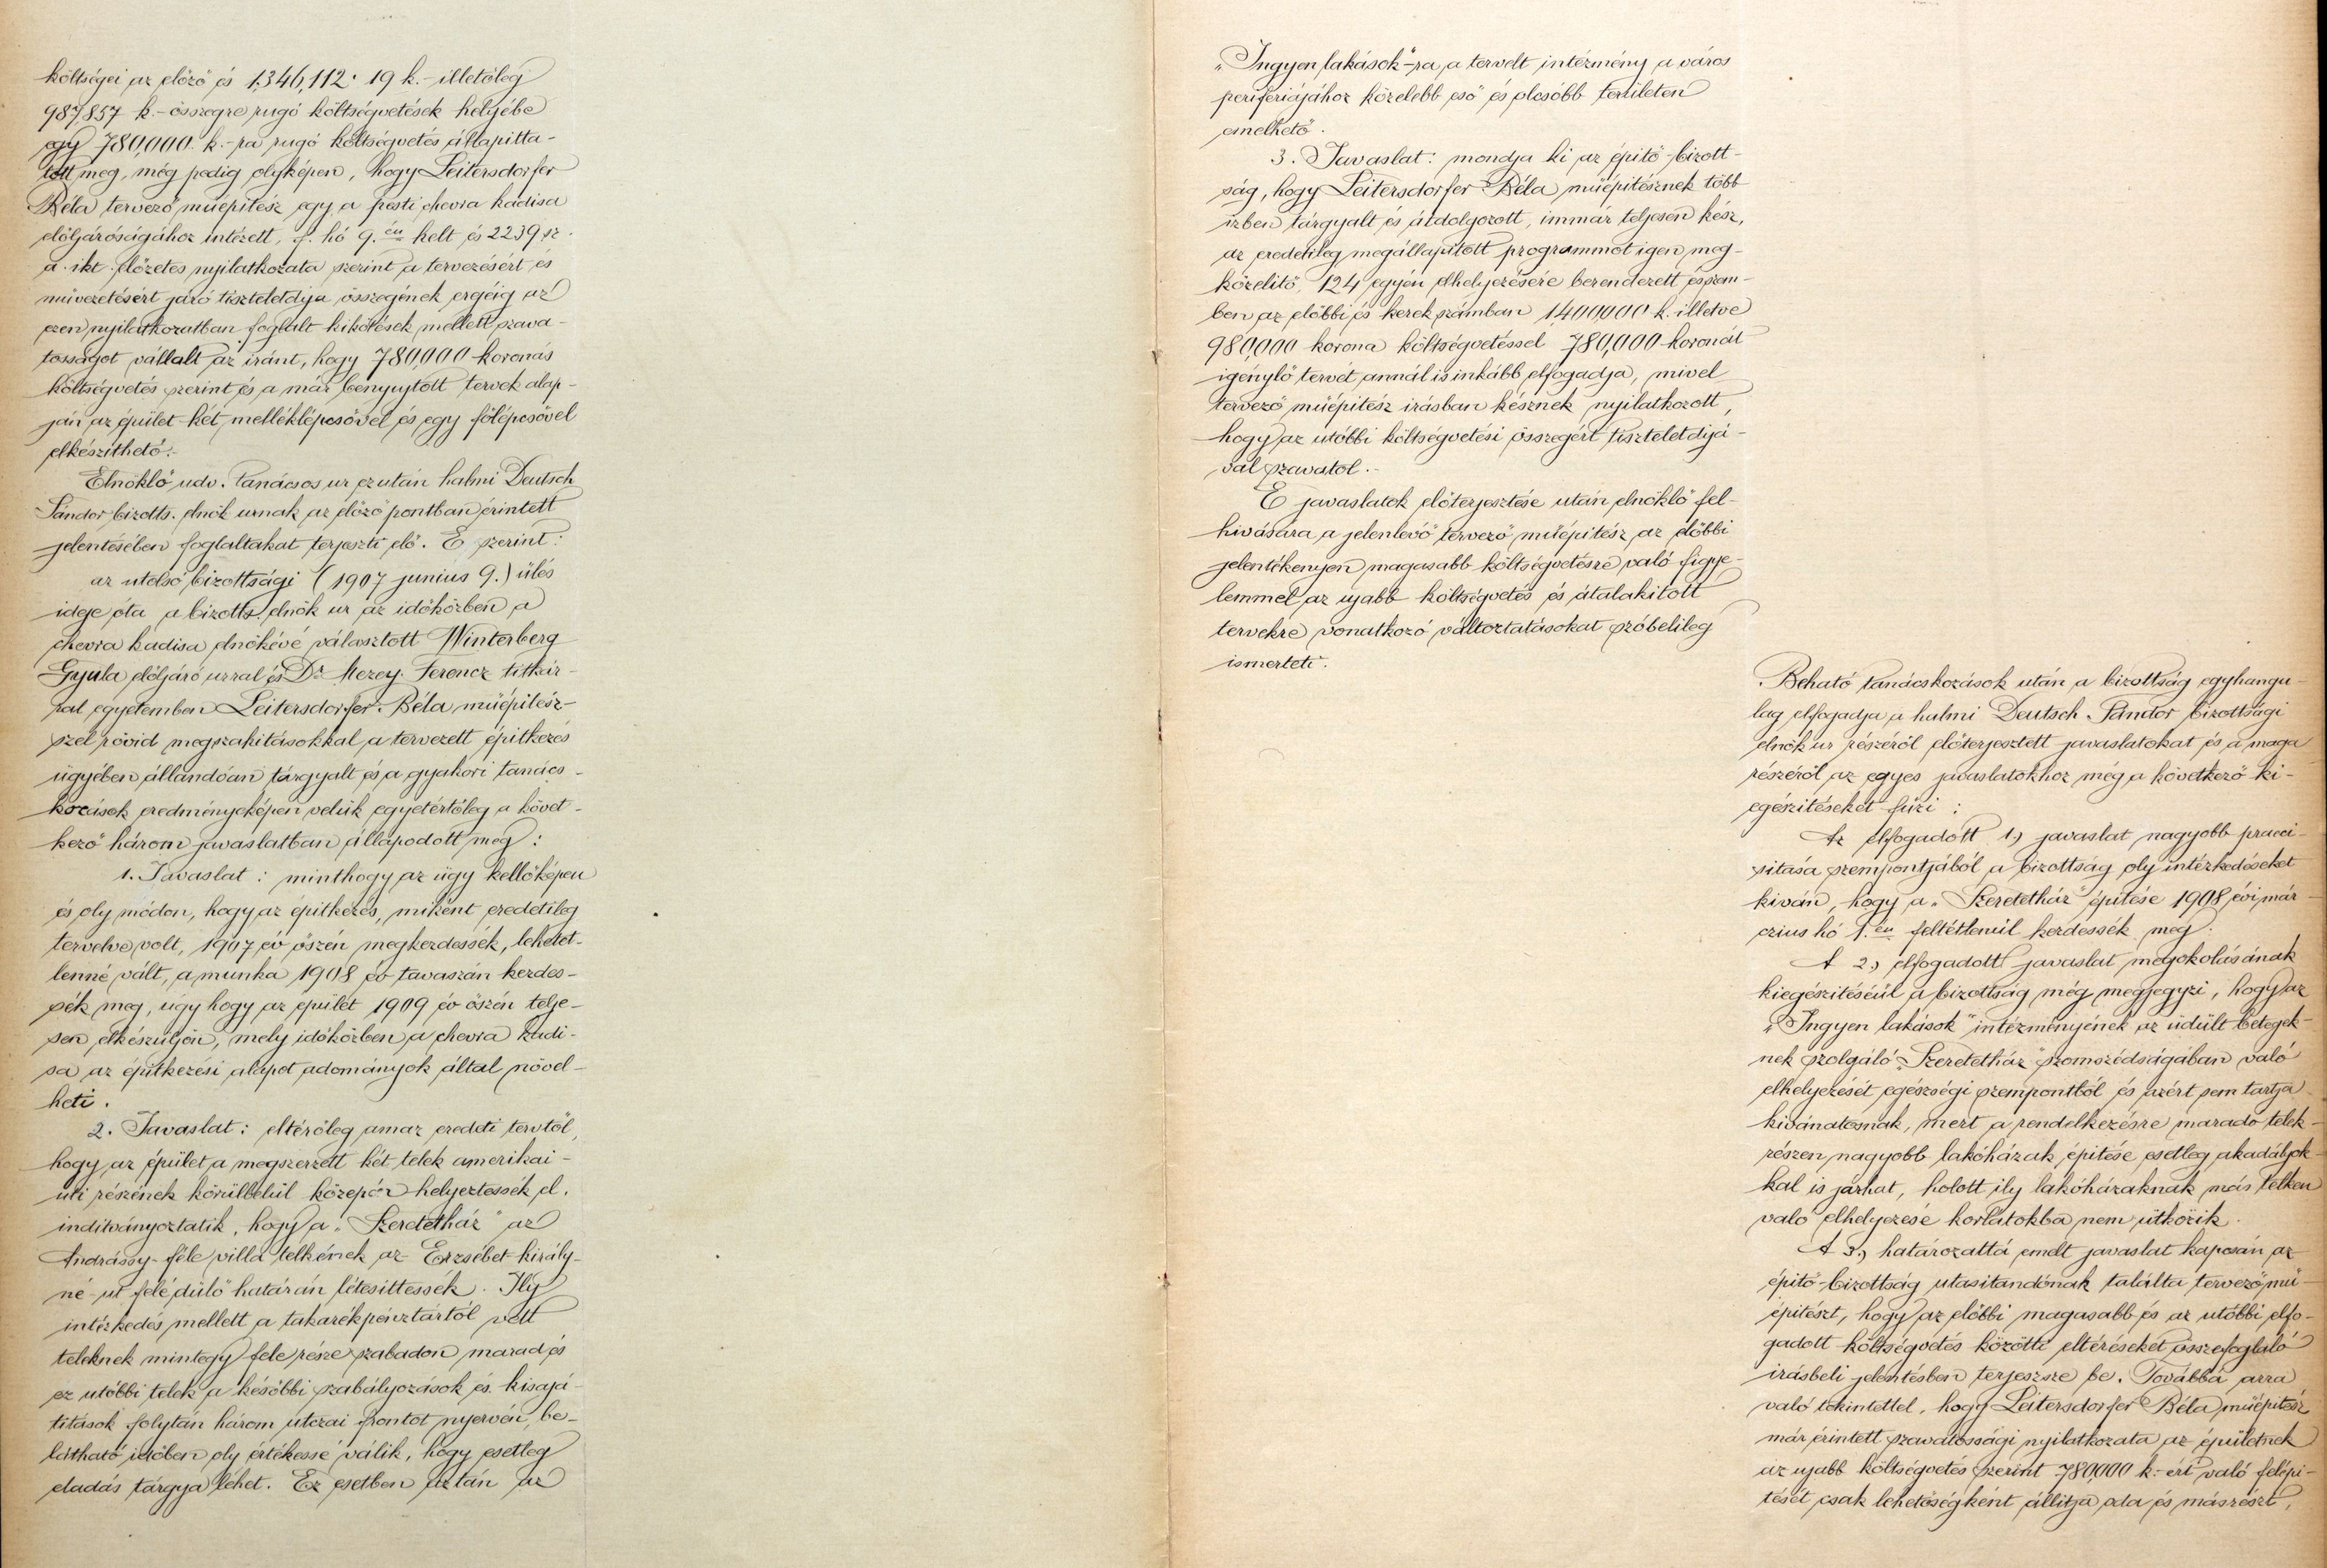 költségei az előző és 1,346,112·19 k.- illetőleg
987,857 k.- összegre rugó költségvetések helyébe
egy 780,000. k.-ra rugó költségvetés állapitta-
tott meg, még pedig olyképen, hogy Leitersdorfer
Béla tervező műépitész egy, a pesti chevra kadisa
elöljáróságához intézett, f. hó 9.én kelt és 2239 sz.
a. ikt. előzetes nyilatkozata szerint a tervezésért és
művezetésért járó tiszteletdija összegének erejéig az
ezen nyilatkozatban foglalt kikötések mellett szava-
tosságot vállalt az iránt, hogy 780,000 koronás
költségvetés szerint és a már benyujtott tervek alap-
ján az épület két melléklépcsővel és egy főlépcsővel
elkészithető.-
Elnöklő udv. tanácsos ur ezután halmi Deutsch
Sándor bizotts. elnök urnak az előző pontban érintett
jelentésében foglaltakat terjeszti elő. E szerint:
az utolsó bizottsági (1907 junius 9.) ülés
ideje óta a bizotts. elnök ur az időközben a
chevra kadisa elnökévé választott Winterberg
Gyula elöljáró urral és Dr Mezey Ferencz titkár-
ral egyetemben Leitersdorfer Béla műépitész-
szel rövid megszakitásokkal a tervezett épitkezés
ügyében állandóan tárgyalt és a gyakori tanács-
kozások eredményeképen velük egyetértőleg a követ-
kező három javaslatban állapodott meg:
1. Javaslat: minthogy az ügy kellőképen
és oly módon, hogy az épitkezés, miként eredetileg
tervelve volt, 1907 év őszén megkezdessék, lehetet-
lenné vált, a munka 1908 év tavaszán kezdes-
sék meg, úgy hogy az épület 1909 év őszén telje-
sen elkészüljön, mely időközben a chevra kadi-
sa az épitkezési alapot adományok által növel-
heti.
2. Javaslat: eltérőleg amaz eredeti tervtől,
hogy az épület a megszerzett két telek amerikai-
uti részének körülbelül közepén helyeztessék el,
inditványoztatik, hogy a „Szeretetház" az
Andrássy-féle villa telkének az Erzsébet király-
né-ut felé dülő határán létesittessék. Ily
intézkedés mellett a takarékpénztártól vett
teleknek mintegy fele része szabadon marad és
ez utóbbi telek a későbbi szabályozások és kisajá-
titások folytán három utczai frontot nyervén, be-
látható időben oly értékessé válik, hogy esetleg
eladás tárgya lehet. Ez esetben aztán az
„Ingyen lakások"-ra a tervelt intézmény a város
perifériájához közelebb eső és olcsóbb területen
emelhető.
3. Javaslat: mondja ki az épitő-bizott-
ság, hogy Leitersdorfer Béla műépitésznek több
izben tárgyalt és átdolgozott, immár teljesen kész,
az eredetileg megállapitott programmot igen meg-
közelitő, 124 egyén elhelyezésére berendezett és szem-
ben az előbbi és kerek számban 1,400,000 k. illetve
980,000 korona költségvetéssel 780,000 koronát
igénylő tervét annál is inkább elfogadja, mivel
tervező műépitész irásban késznek nyilatkozott,
hogy az utóbbi költségvetési összegért tiszteletdijá-
val szavatol.-
E javaslatok előterjesztése után elnöklő fel-
hivására a jelenlevő tervező műépitész az előbbi
jelentékenyen magasabb költségvetésre való figye-
lemmel az ujabb költségvetés és átalakitott
tervekre vonatkozó változtatásokat szóbelileg
ismerteti.
Beható tanácskozások után a bizottság egyhangu-
lag elfogadja a halmi Deutsch Sándor bizottsági
elnök ur részéről előterjesztett javaslatokat és a maga
részéről az egyes javaslatokhoz még a következő ki-
egészitéseket fűzi:
Az elfogadott 1.) javaslat nagyobb praeci-
sitása szempontjából a bizottság oly intézkedéseket
kiván, hogy a „Szeretetház" épitése 1908 évi már-
czius hó 1.én feltétlenül kezdessék meg.
A 2.) elfogadott javaslat megokolásának
kiegészitéséül a bizottság még megjegyzi, hogy az
„Ingyen lakások" intézményének az üdült betegek-
nek szolgáló „Szeretetház" szomszédságában való
elhelyezését egészségi szempontból és azért sem tartja
kivánatosnak, mert a rendelkezésre maradó telek-
részen nagyobb lakóházak épitése esetleg akadályok-
kal is járhat, holott ily lakóházaknak más telken
való elhelyezése korlátokba nem ütközik.
A 3.) határozattá emelt javaslat kapcsán az
épitő-bizottság utasitandónak találta tervező mű-
épitészt, hogy az előbbi magasabb és az utóbbi elfo-
gadott költségvetés közötti eltéréseket összefoglaló
irásbeli jelentésben terjeszsze be. Továbbá arra
való tekintettel, hogy Leitersdorfer Béla műépitész
már érintett szavatossági nyilatkozata az épületnek
az ujabb költségvetés szerint 780,000 k.-ért való felépi-
tését csak lehetőségként állitja oda és másrészt,